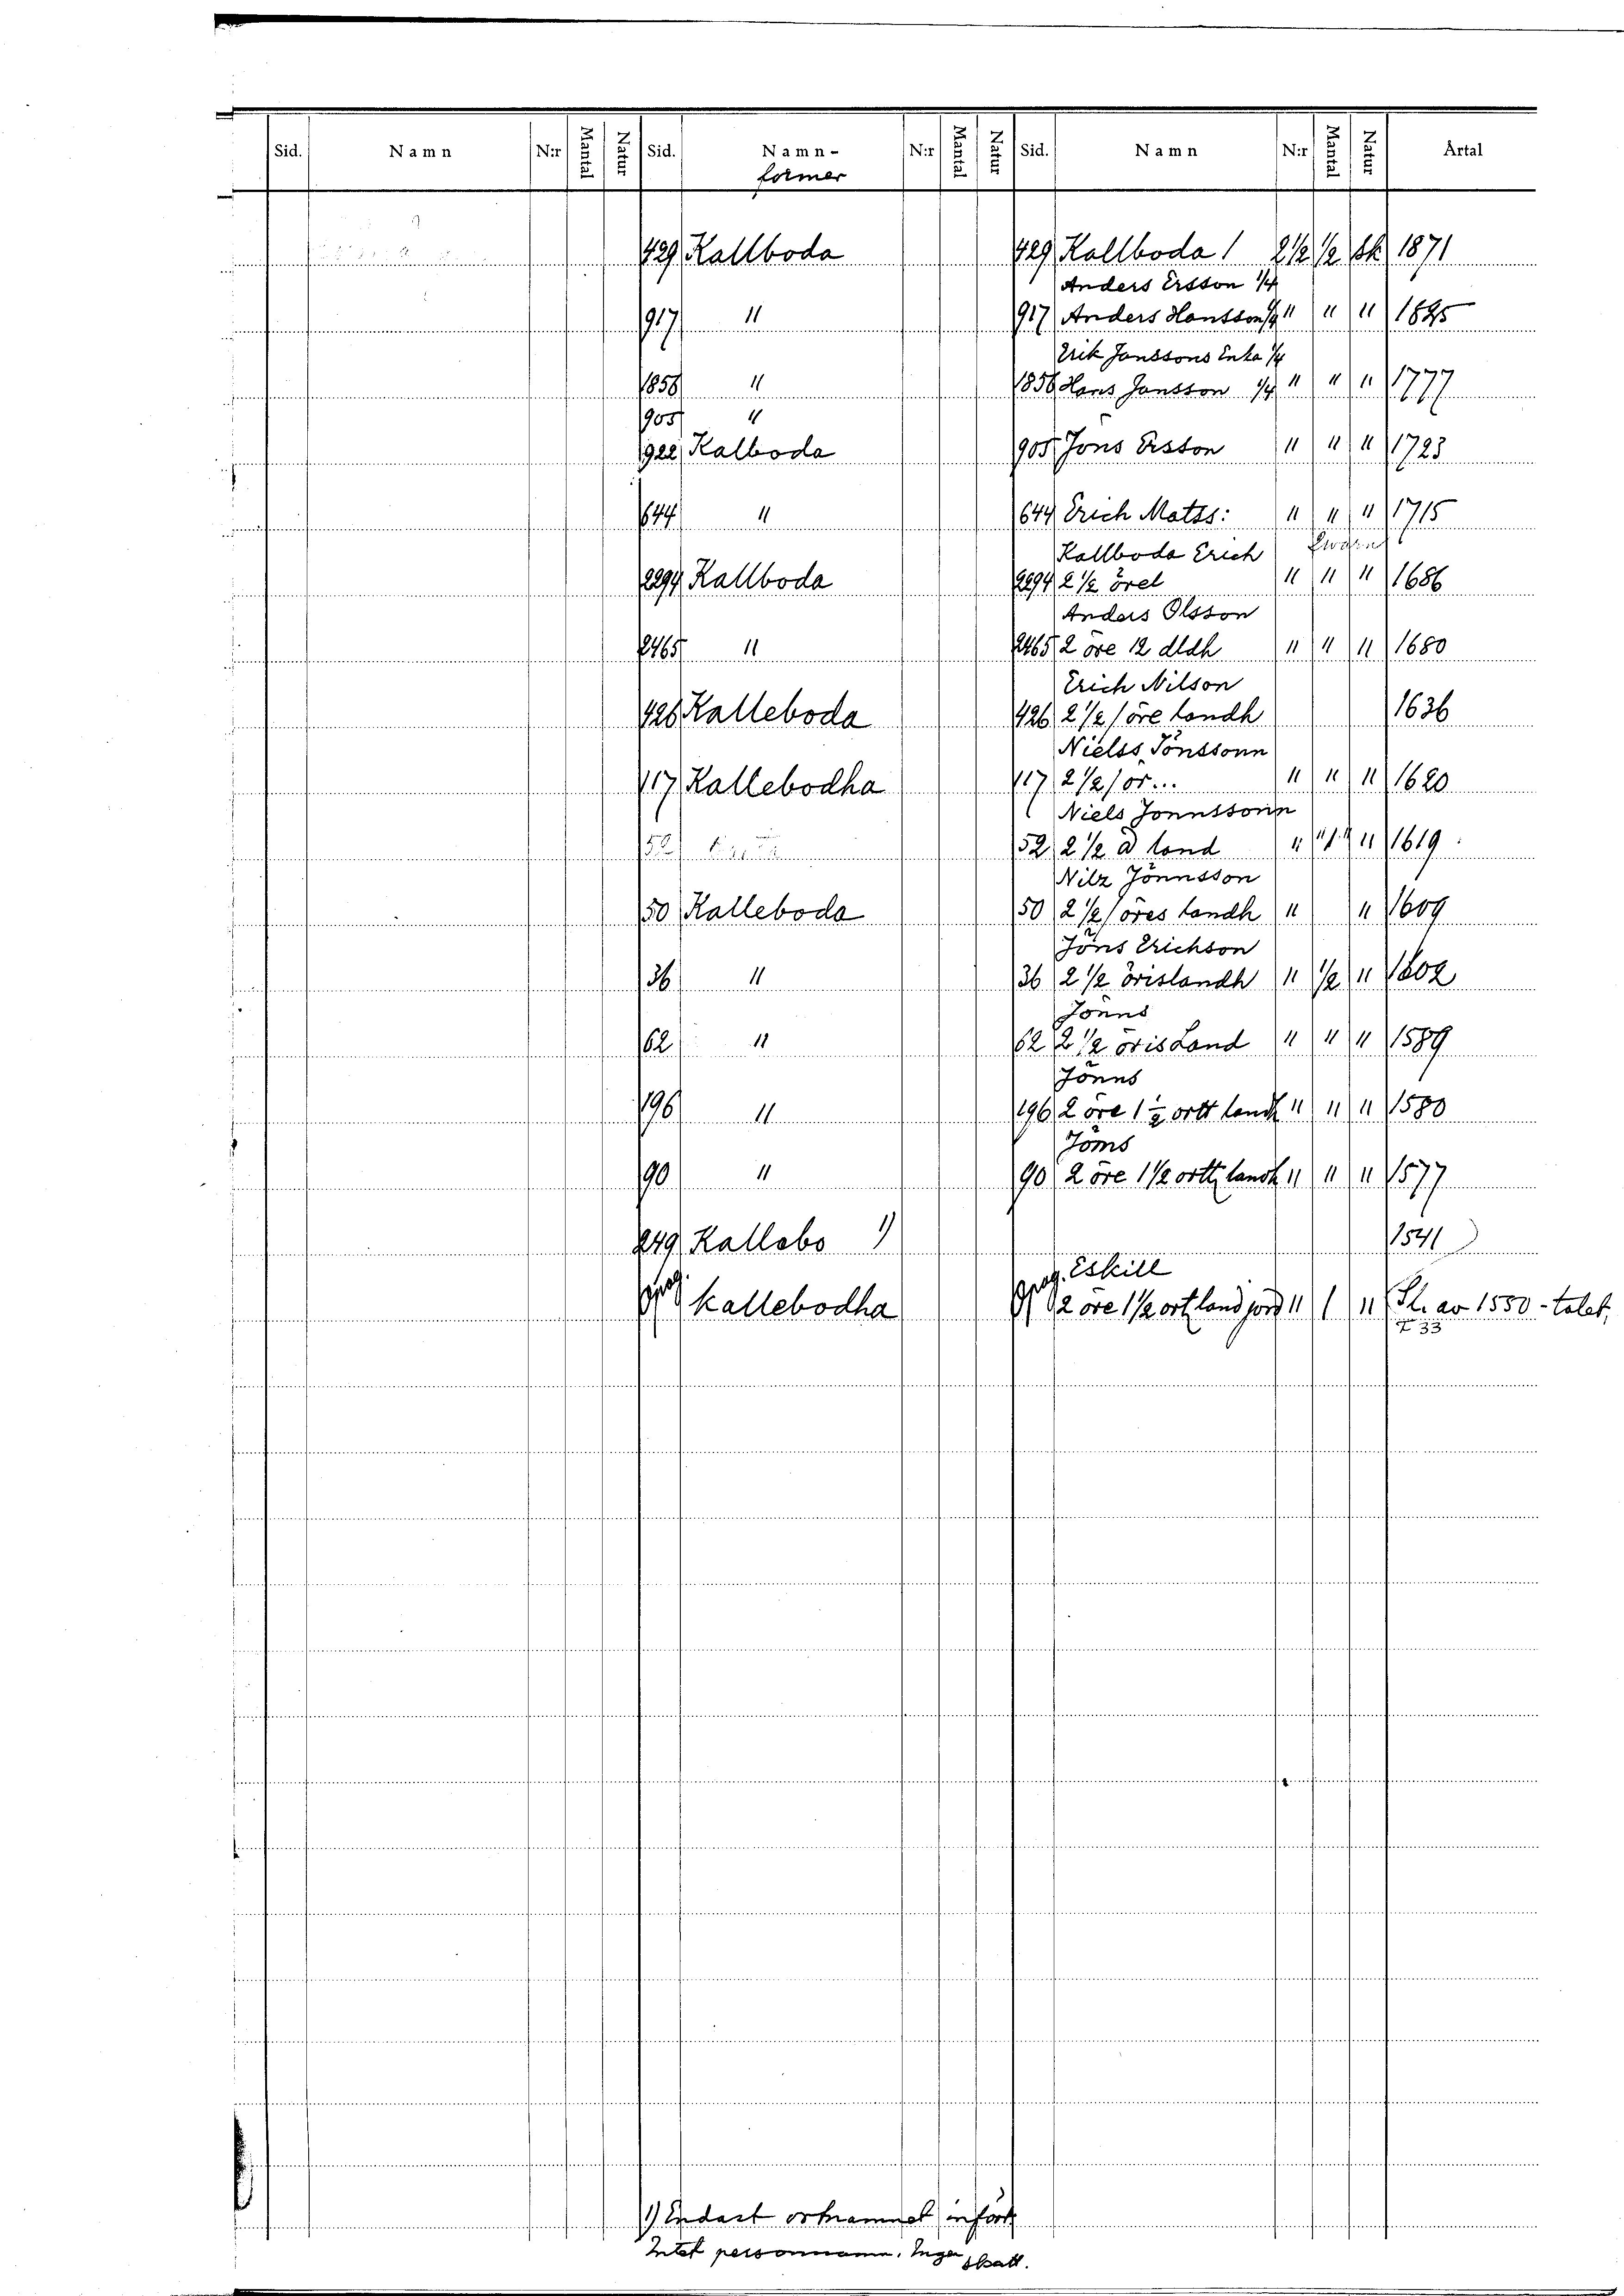 Sid. Namn N:r Mantal Natur Sid. Namn- N:r Mantal Natur Sid. Namn N:r Mantal Natur Årtal
former
429 Kallboda 429 Kallboda 1 2 1/2 1/2 Sk 1871
Anders Ersson 1/4
917 " 917 Anders Hansson 1/4 " " " 1825
Erik Janssons Enka 1/4
1858 " 1858 Hans Jansson 1/4 " " " 1777
905 "
922 Kalboda 905 Jons Ersson " " " 1723
644 " 644 Erich Matss: " " " 1715
Kallboda Erich
2294 Kallboda 2294 2 1/2 örel " " " 1686
Anders Olsson
2465 " 2465 2 öre 12 dldh " " " 1680
Erich Nilson
426 Kalleboda 426 2 1/2 / öre landh 1636
Nielss Jönssonn
117 Kallebodha 117 2 1/2 / ör... " " " 1620
Niels Jonnssonn
52 52 2 1/2 land " " 1619
Nilz Jönnsson
50 Kalleboda 50 2 1/2 / öres landh " " 1609
Jöns Erichson
36 " 36 2 1/2 örislandh " 1/2 " 1602
Jönns
62 " 62 2 1/2 öris Land " " " 1589
Jönns
196 " 196 2 öre 1 1/2 ortt landh " " " 1580
Jöms
90 " 90 2 öre 1 1/2 ortt landh " " " 1577
249 Kallabo 1) 1541
Eskill
kallebodha 2 öre 1 1/2 ort land jord " 1 " Sl. av 1550-talet,
F 33
1) Endast ortnamnet infört
Intet personnamn. Ingen skatt.